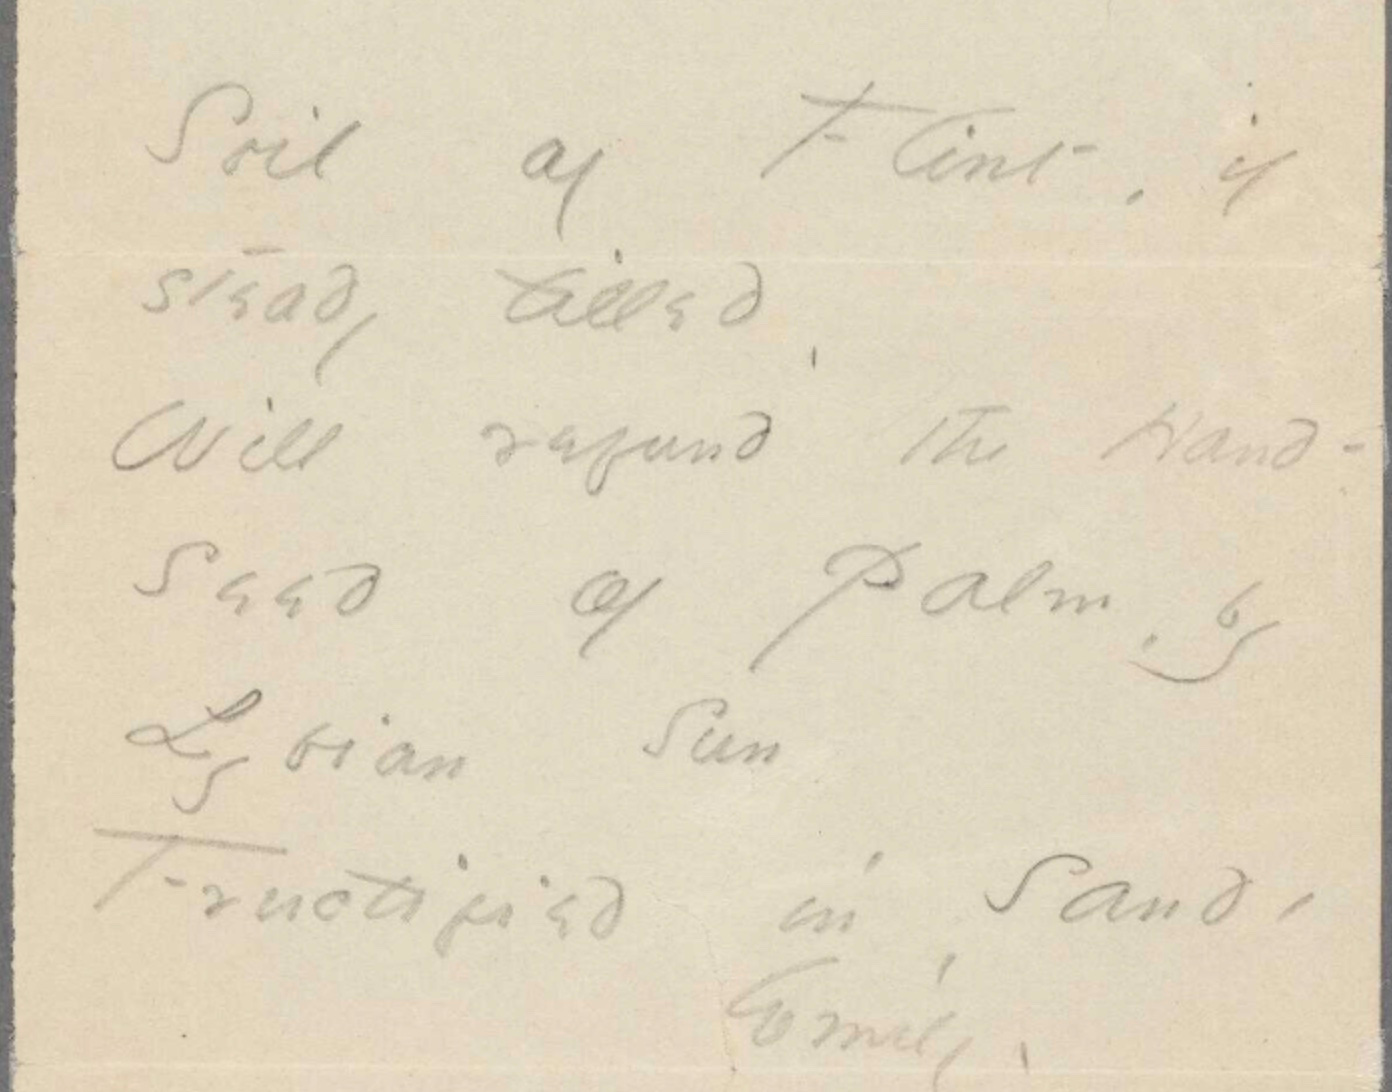 Soil of Flint, if
steady tilled,
Will refund the Hand -
Seed of Palm, by
Lybian Sun
Fructified in Sand,
Emily.